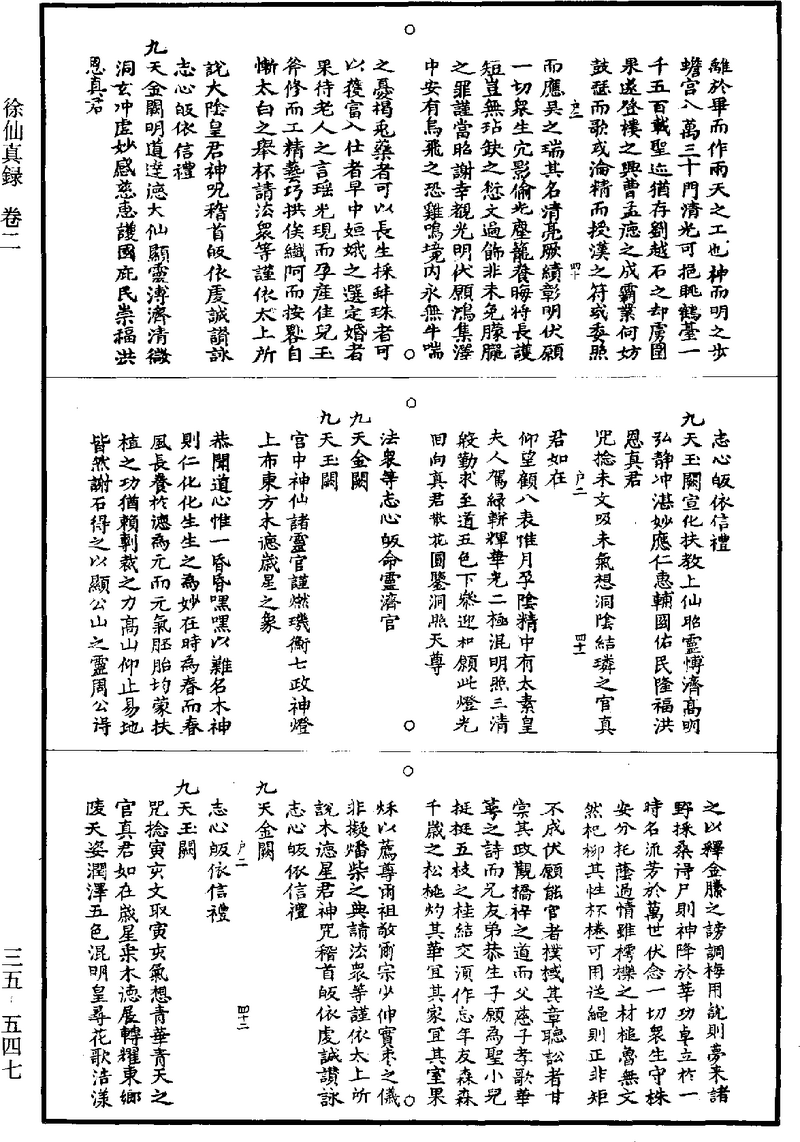 徐仙真録 卷二
離於畢而作雨天之工也神而明之步
蟾宮八萬三千門清光可挹眺鶴臺一
千五百載聖迹猶存劉越石之却虜圍
果遂登樓之興曹孟德之成霸業何妨
鼓瑟而歌或淪精而授漢之符或委照
而應吳之瑞其名清亮厥績彰明伏願
一切衆生穴影偷光塵籠養晦特長護
短豈無玷鈌之愆文過飾非未免朦朧
之罪謹當昭謝幸覩光明伏願鴻集澤
中安有烏飛之恐雞鳴境内永無牛喘
之憂搗兎藥者可以長生採蚌珠者可
以獲富入仕者早中姮娥之選定婚者
果待老人之言瑶光現而孕產佳兒玉
斧修而工精藝巧拱俟纎阿而按畧自
慚太白之舉杯請法衆等謹依太上所
說大陰皇君神呪稽首皈依虔誠讃詠
志心皈依信禮
九天金闕明道達德大仙顯靈溥濟清微
洞玄冲虛妙感慈惠護國庇民崇福洪
恩真君
志心皈依信禮
九天玉闕宣化扶教上仙昭靈博濟高明
弘静冲湛妙應仁惠輔國佑民隆福洪
恩真君
咒捻未文吸未氣想洞陰結璘之官真
君如在
仰望顧八表惟月孕陰精中有太素皇
夫人駕綠軿輝華光二極混明照三清
皎勤求至道五色下叅迎和願此燈光
回向真君散花圓鑒洞照天尊
法衆等志心皈命靈濟官
九天金闕
九天玉闕
官中神仙諸靈官謹燃璣衡七政神燈
上布東方木德歲星之象
恭聞道心惟一昏昏嘿嘿以難名木神
則仁化化生生之為妙在時為春而春
風長養於德為元而元氣胚胎均蒙扶
植之功猶賴剸裁之力高山仰止易地
皆然謝石得之以顯公山之靈周公得
之以釋金縢之謗調梅用說則夢来諸
野採桑尋尸則神降於莘功卓立於一
時名流芳於萬世伏念一切衆生守株
安分托蔭過情雖樗櫟之材槌魯無文
然杞柳其性杯棬可用從繩則正非矩
不成伏願能官者樸棫其章聽訟者甘
棠其政觀橋梓之道而父慈子孝歌華
蕚之詩而兄友弟恭生子願為聖小兒
挺挺五枝之桂結交須作忘年友森森
千歲之松桃灼其華宜其家宜其室果
穌以薦尊甫祖敬爾宗少伸賓枣之儀
非擬燔柴之典請法衆等謹依太上所
說木德星君神咒稽首皈依虔誠讃詠
志心皈依信禮
九天金闕
志心皈依信禮
九天玉闕
咒捻寅亥文取寅亥氣想青華青天之
官真君如在歲星乘木德展轉耀東鄉
陵天姿潤澤五色混明皇尋花歌浩漾
三五-五四七